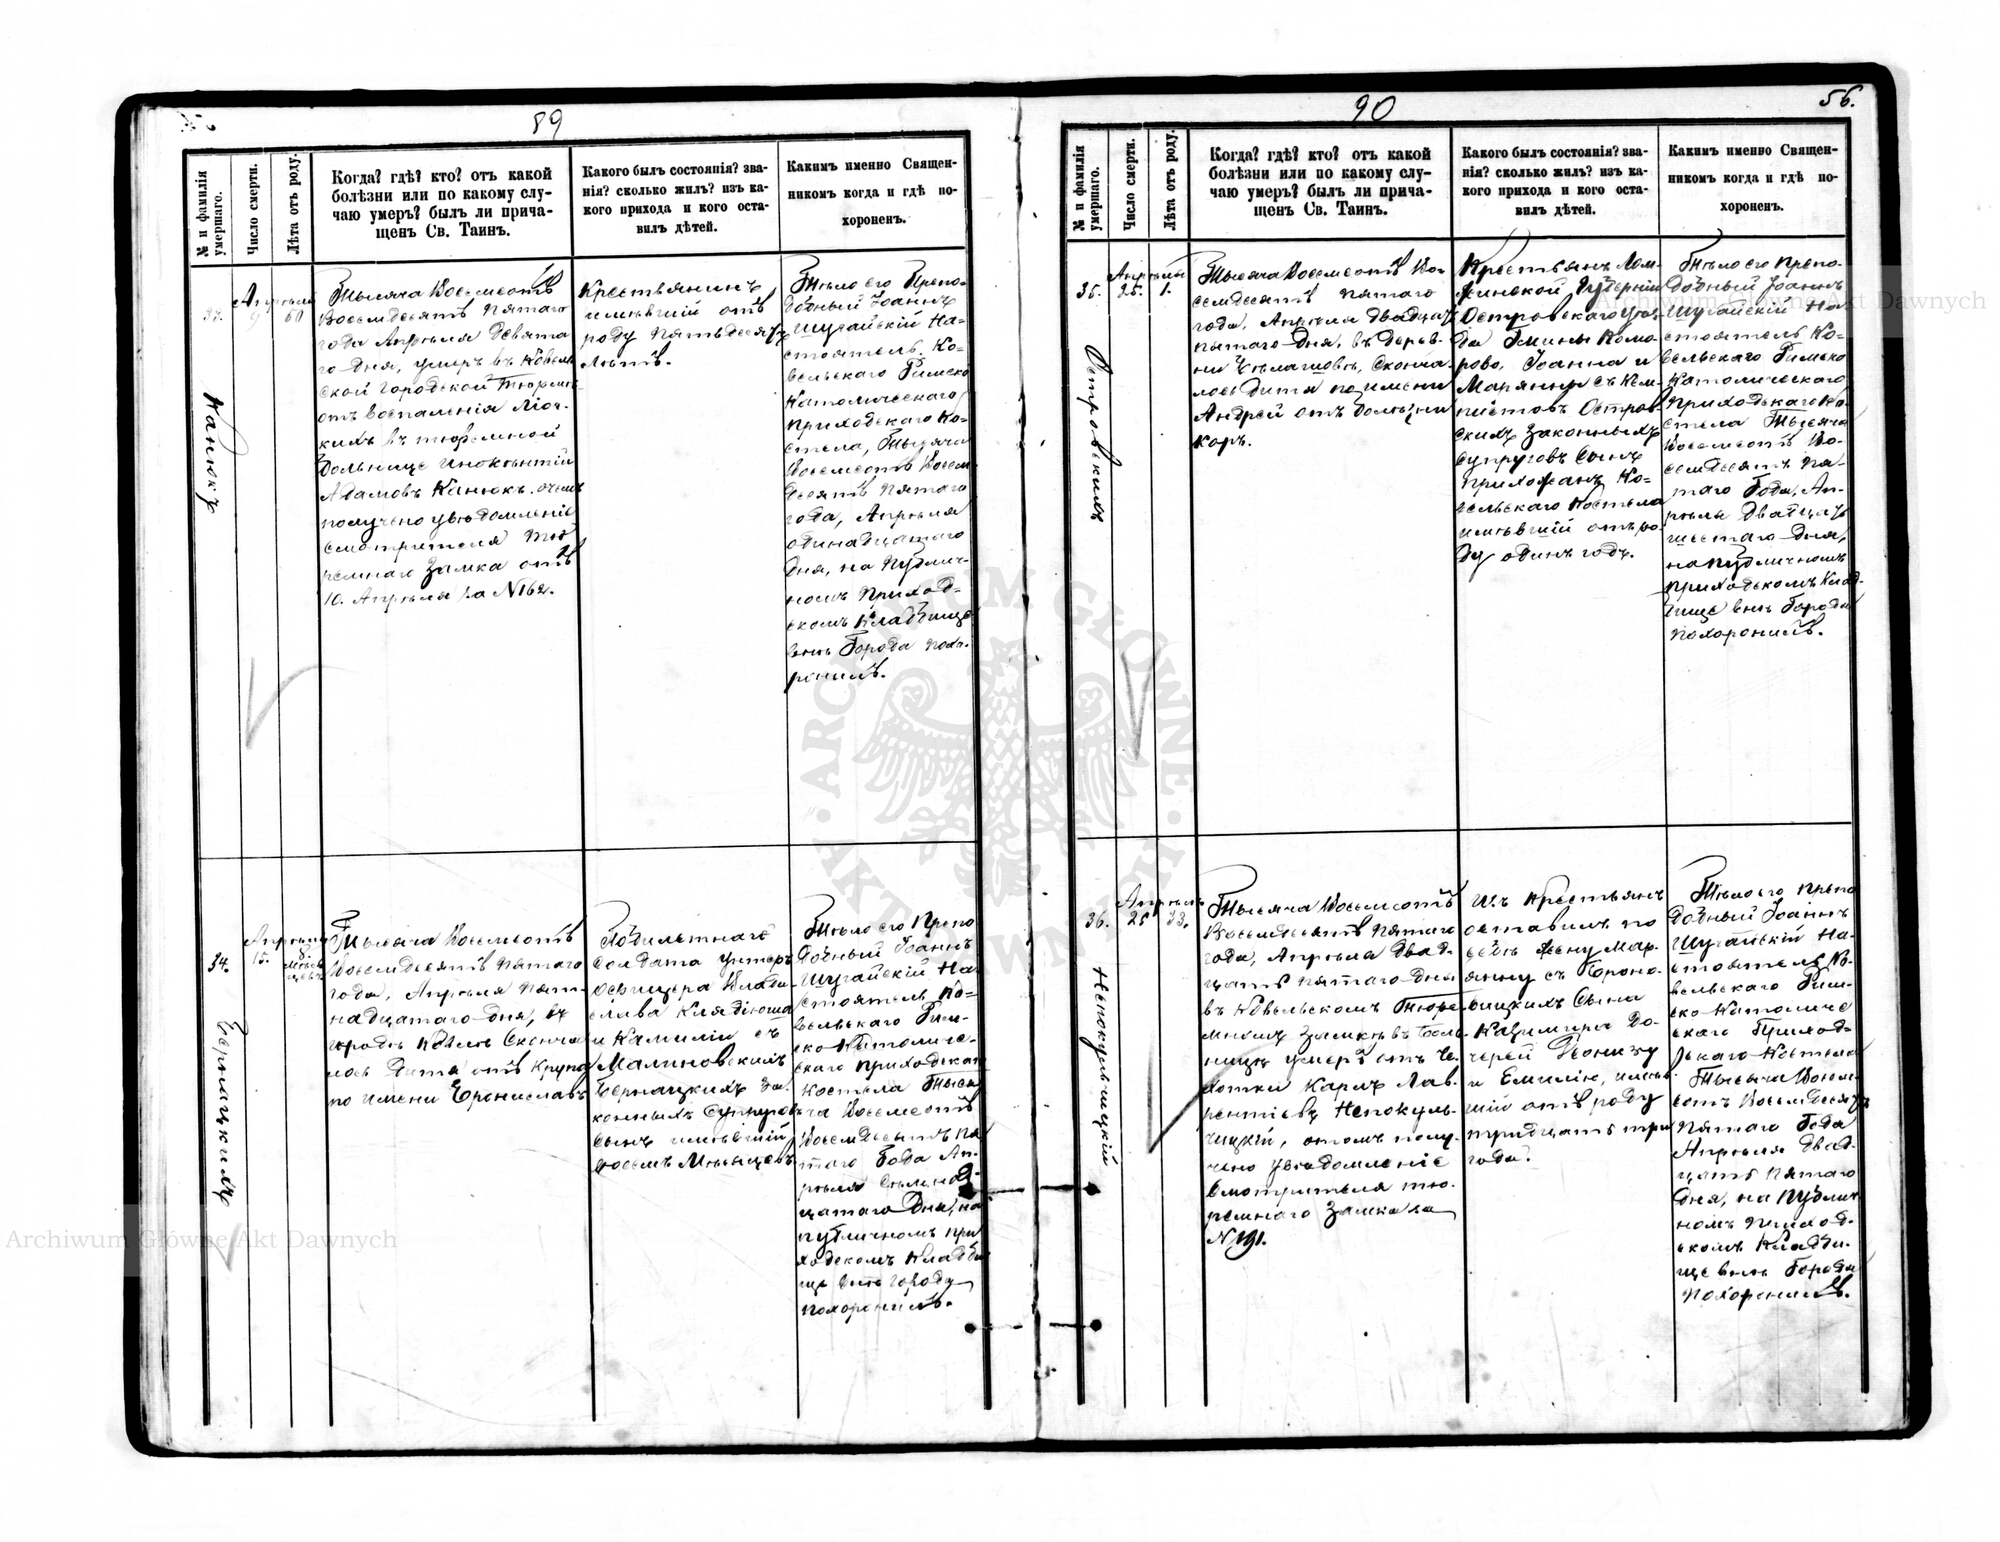 89
№ и фамилія умершаго.
Число смерти.
Лѣта отъ роду.
Когда? гдѣ? кто? отъ какой
болѣзни или по какому слу-
чаю умеръ? былъ ли прича-
щенъ Св. Таинъ.
Какого былъ состоянія? зва-
нія? сколько жилъ? изъ ка-
кого прихода и кого оста-
вилъ дѣтей.
Какимъ именно Священ-
никомъ когда и гдѣ по-
хороненъ.
Канюкъ
Апрѣля
9
Тысяча Восемсотъ
Восемдесятъ Пятаго
года Апрѣля Девята
го дня, умеръ въ Ковель
ской городской Тюрьмѣ
отъ воспаленія Лёг-
кихъ въ тюремной
больнице
Адамовъ Канюкъ. очемъ
получено увѣдомленіе
смотрителя Тю
ремнаго Замка отъ
10. Апрѣля за N162.
Крестьянинъ
имѣвшій отъ
роду пятьдесятъ
лѣтъ.
Тѣло его Препо-
добный Іоаннъ
Шугайскій На-
стоятель Ко-
вельскаго Римско
Католическаго
приходскаго Ко-
стела, Тысяча
Восемсотъ Восем-
десятъ Пятаго
года, Апрѣля
одинадцатаго
дня, на Публич-
номъ приход-
скомъ Кладбище
внѣ Города похо-
ронилъ.
34.
Бернацкихъ
Апрѣля
15.
8
Мѣся
цевъ
Тысяча Восемсотъ
Восемдесятъ пятаго
года, Апрѣля Пят-
надцатаго дня, въ
городѣ Ковлѣ Сконча
лось Дитя отъ Крупа
по имени Брониславъ
солдата унтеръ
Офицера Влади-
слава Клядіюша
и Камиліи съ
Малиновскихъ
Бернацкихъ за-
конныхъ Супруговъ
Сынъ имѣвшій
восемь Мѣсяцевъ
Тѣло его Препо
добный Іоаннъ
Шугайскій На-
стоятель Ко-
вельскаго Рим-
ско Католиче-
скаго приходскаго
Костела Тыся
ча Восемсотъ
Восемдесятъ пя
таго Года Ап-
рѣля Семьнад-
цатаго Дня, на
публичномъ при
ходскомъ кладби
ще внѣ города
похоронилъ.
90
56.
№ и фамилія умершаго.
Число смерти.
Лѣта отъ роду.
Когда? гдѣ? кто? отъ какой
болѣзни или по какому слу-
чаю умеръ? былъ ли прича-
щенъ Св. Таинъ.
Какого былъ состоянія? зва-
нія? сколько жилъ? изъ ка-
кого прихода и кого оста-
вилъ дѣтей.
Какимъ именно Священ-
никомъ когда и гдѣ по-
хороненъ.
35.
Островскихъ
Апрѣля
25.
1.
Тысяча Восемсотъ Во-
семдесятъ пятаго
года, Апрѣля двадцать
пятаго дня, въ дерев-
ни Сконча-
лось Дитя по имени
Андрей отъ болѣзни
коръ.
Крестьянъ Лом-
жинской Губерніи
Островскаго Уѣз-
да Гмины Кома-
рово, Іоанна и
Марянны съ Кем-
пистовъ Остров-
скихъ Законныхъ
Супруговъ Сынъ
прихожанъ Ко-
вельскаго Костела
имѣвшій отъ ро-
ду одинъ годъ.
Тѣло его Препо-
добный Іоаннъ
Шугайскій На-
стоятель Ко-
вельскаго Римско
Католическаго
приходскаго Ко-
стела Тысяча
Восемсотъ Во-
семдесятъ Пя-
таго Года, Ап-
рѣля Двадцать
шестаго дня,
на публичномъ
приходскомъ Клад-
бище внѣ Города
похоронилъ.
36.
Непокульчицкій
Апрѣля
25
33.
Тысяча Восемсотъ
Восемдесятъ пятаго
года, Апрѣля Двад-
цать пятаго дня
въ Ковельскомъ Тюре-
мномъ Замкѣ въ боль
нице умеръ отъ че-
хотки Карлъ Лав-
рентіевъ Непокуль-
чицкій, отомъ полу-
чено увѣдомленіе
Смотрителя тю-
ремнаго Замка за
N191.
Изъ Крестьянъ
оставилъ по
себѣ жену Мар-
янну съ
Сына
Казимира До-
черей
и Емилію, имѣв-
шій отъ роду
тридцать три
года.
Тѣло его Препо
добный Іоаннъ
Шугайскій На-
стоятель Ко-
вельскаго Рим-
ско Католиче
скаго Приход-
скаго Костела
Тысяча Восем-
сотъ Восемдесятъ
Пятаго Года
Апрѣля Двад-
цать пятаго
Дня, на Публич
номъ приход-
скомъ Кладби-
ще внѣ Города
похоронилъ.
Archiwum Główne Akt Dawnych
Archiwum Główne Akt Dawnych
ARCHIWUM GŁÓWNE AKT DAWNYCH